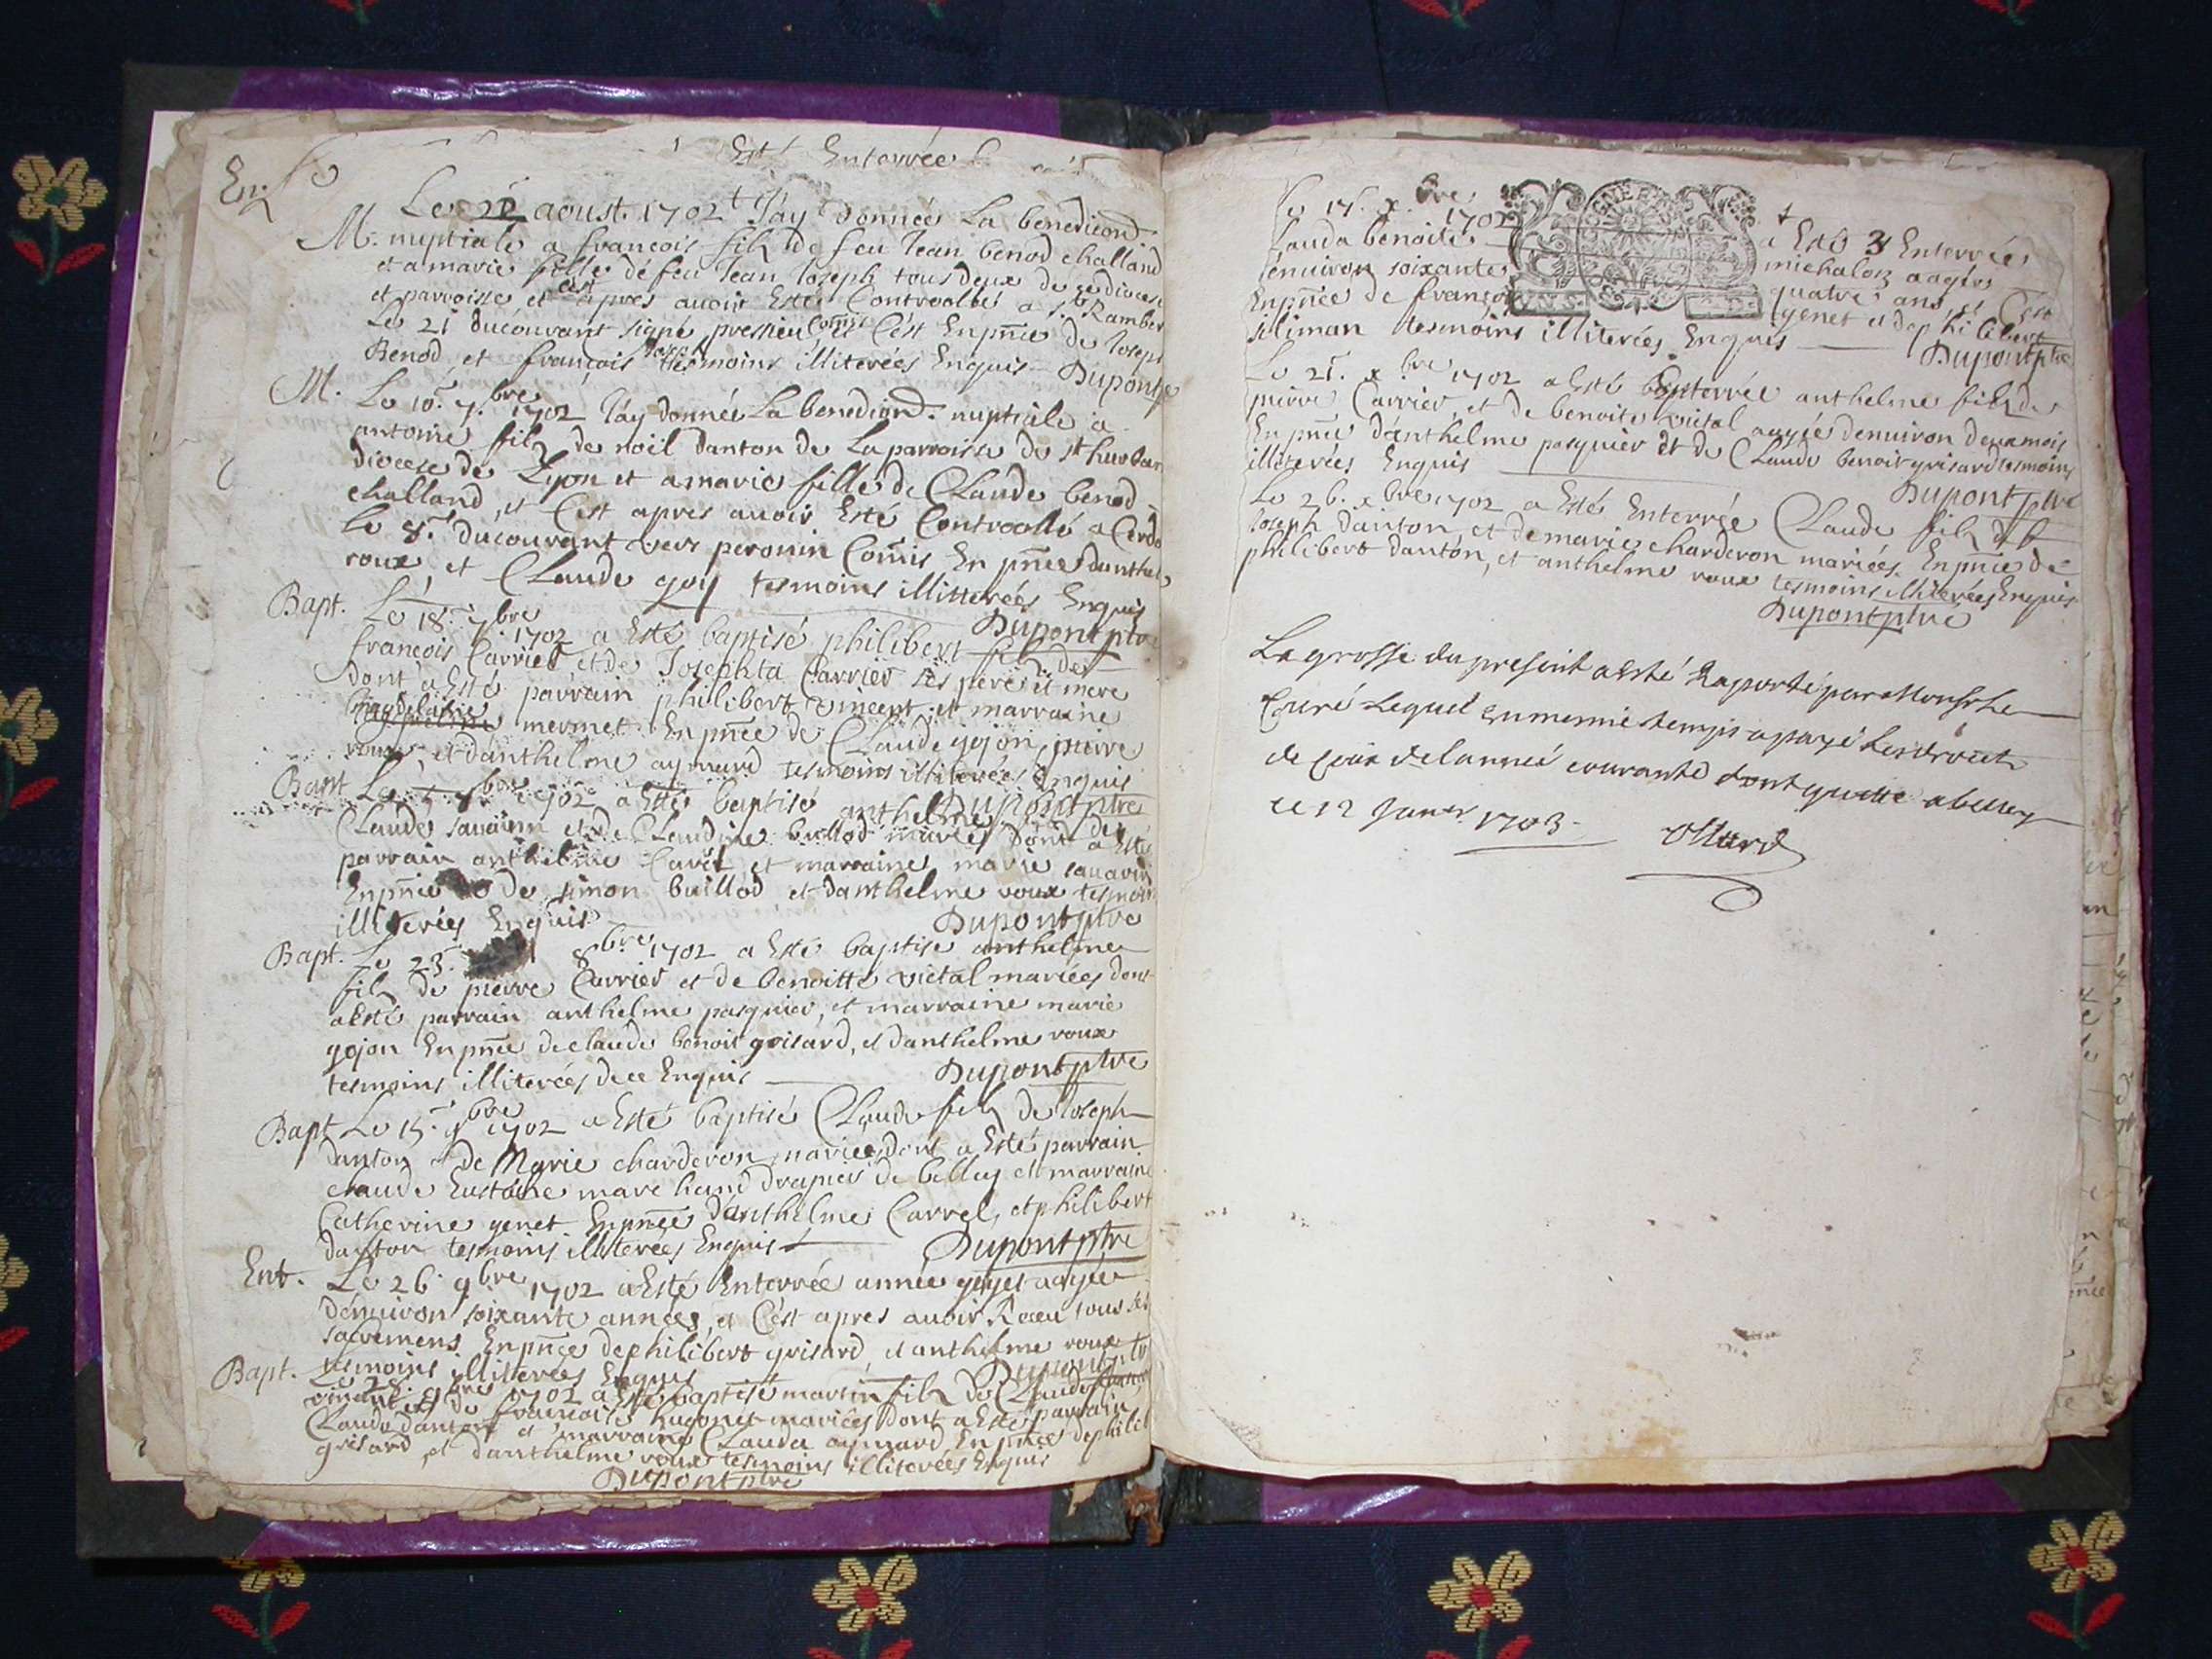 Esté Enterrée
Le 22 aoust 1702 Jáy donnée La benediçond
M. nuptiale a francois filz de feu Jean benod challand
et a marie fille dé feu Jean Joseph tous deux de ce diocese
et parroisse et c'est apres auoir Esté Controollé a st Rambert
Le 21 ducourant signé pressieu Comis C'est En pnce de Joseph
Benod, et françois Joseph tesmoins illiterées Enquis Dupont
M. Le 10. 7.bre 1702 Jáy donnée La benediond. nuptiale a
antoine filz de noïl danton de La parroisse de st
diocese de Lyon et a marie fille de Claude benod
challand, et C'est apres auoir Esté Controollé a Cerdo
le 8. ducourant vers peronin Comis En pnce danthel
roux, et Claude goij tesmoins illitterées Enquis
Dupont ptre
Bapt. Le 18. 7bre 1702 a Esté baptisé philibert filz de
francois Carrier et de Josephta Carrier ses pere et mere
dont a Esté parrain philibert vincent et marraine
mermet En pnce de Claude gojon, pierre
roux, et danthelme aymard tesmoins illiterées Enquis
Dupont ptre
Bapt Le 8bre 1702 a Esté baptisé anthelme de
Claude sauarin et de Claudine buillod mariés dont a Esté
parrain anthelme Carel et marraine marie sauarin
En pnce de simon buillod et danthelme roux tesmoin
illiterées Enquis Dupont ptre
Bapt. Le 23. 8bre 1702 a Esté baptisé anthelme
filz de pierre Carrier et de benoitte vietal mariées dont
a Esté parrain anthelme pasquier, et marraine marie
gojon En pnce de claude benoit grisard, et danthelme roux
tesmoins illiterées de ce Enquis Dupont ptre
Bapt Le 15. 9bre 1702 a Esté baptisé Claude filz de Joseph
danton et de Marie charderon mariées dont a Esté parrain
claude Eustache marchand drapier de belley et marraine
Catherine genet En pnce d'anthelme Carrel, et philibert
danton tesmoins illiterées Enquis Dupont ptre
Ent. Le 26 9bre 1702 a Esté Enterrée année aagée
dénuiron soixante années, et C'est apres auoir Receu tous ses
sacremens En pnce de philibert grisard, et anthelme roux
tesmoins illiterées Enquis Dupont ptre
Bapt. Le 28. 9bre 1702 a Esté baptisé martin filz de Claude
vincent et de francoise hugonet mariées dont a Esté parrain
Claude danton et marraine Clauda aymard En pnce de philib
grisard et danthelme roux tesmoins illiterées Enquis
Dupont ptre
Le 17. x.bre 1702 a Esté Enterrée
Clauda benoite michalon aagée
dénuiron soixante quatre ans et C'est
En pnce de françois genet et de philibert
siliman tesmoins illiterées Enquis Dupont ptre
Le 21. x.bre 1702 a Esté Enterrée anthelme filz de
pierre Carrier, et de benoite vietal aagée denuiron deux mois
En pnce d'anthelme pasquier et de Claude benoit grisard tesmoins
illiterées Enquis Dupont ptre
Le 26. xbre 1702 a Esté Enterrée Claude filz de
Joseph danton et de marie charderon mariées. En pnce de
philibert danton, et anthelme roux tesmoins illiterées Enquis
Dupont ptre
La grosse du present a esté Raporté par Monsr Le
Curé Lequel en mesme temps a payé Les droict
de ceux de lannée courante dont quitte a belley
ce 12 Janer 1703